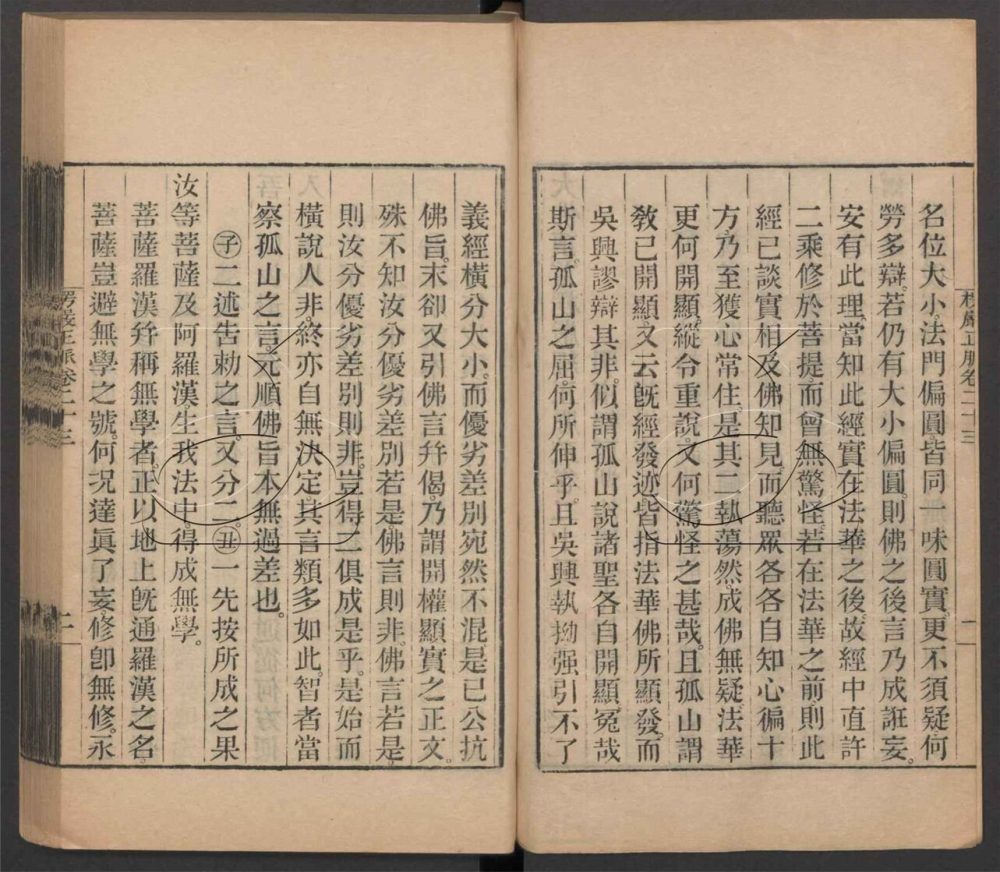 名位大小。法門偏圓皆同一味圓實。更不須疑何
勞多辯。若仍有大小偏圓。則佛之後言乃成誑妄。
安有此理。當知此經實在法華之後。故經中直許
二乘修於菩提。而曾無驚怪。若在法華之前。則此
經已談實相。及佛知見。而聽眾各各自知心徧十
方。乃至獲心常住。是其二執蕩然。成佛無疑。法華
更何開顯。縱令重說。又何驚怪之甚哉。且孤山謂
教已開顯。文云旣經發迹。皆指法華佛所顯發。而
吳興謬辯其非。似謂孤山說諸聖各自開顯。冤哉
斯言。孤山之屈。何所伸乎。且吳興執拗。强引不了
楞嚴正脈卷二十三
一
義經。橫分大小。而優劣差別。宛然不混。是已公抗
佛旨。末卻又引佛言幷偈。乃謂開權顯實之正文。
殊不知汝分優劣差別若是。佛言則非。佛言若是。
則汝分優劣差別則非。豈得二俱成是乎。是始而
橫說人非。終亦自無決定。其言類多如此。智者當
察孤山之言。元順佛旨。本無過差也。
㊂子二述告勅之言。又分二。丑一先按所成之果
汝等菩薩及阿羅漢。生我法中。得成無學。
菩薩羅漢幷稱無學者。正以地上旣通羅漢之名。
菩薩豈避無學之號。何況達眞了妄。修卽無修。永
楞嚴正脈卷二十三
二